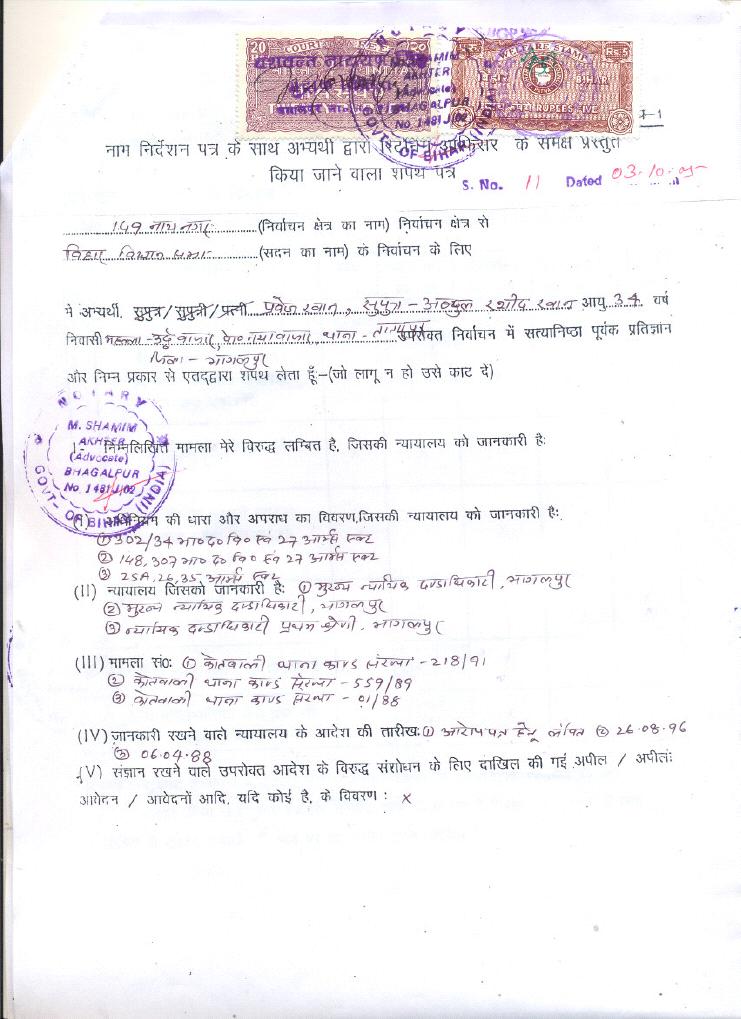 20 COURT FEE २०
WELFARE STAMP
Re.5
BIHAR
RUPEES FIVE
यशवन्त नारायण
NOTARY
M. SHAMIM
AKHTER
(Advocate)
BHAGALPUR
No. 1481J/02
GOVT. OF BIHAR (INDIA)
नाम निर्देशन पत्र के साथ अभ्यर्थी द्वारा रिटर्निंग ऑफिसर के समक्ष प्रस्तुत
किया जाने वाला शपथ पत्र
S. No. 11 Dated 03.10.05
149 नाथनगर (निर्वाचन क्षेत्र का नाम) निर्वाचन क्षेत्र से
बिहार विधान सभा (सदन का नाम) के निर्वाचन के लिए
मे अभ्यर्थी, सुपुत्र/सुपुत्री/पत्नी परवेज खान, सुपुत्र - अब्दुल रशीद खान आयु 34 वर्ष
निवासी महल्ला - उर्दू बाजार, पो० नया बाजार, थाना - तातारपुर उपरोक्त निर्वाचन में सत्यानिष्ठा पूर्वक प्रतिज्ञान
जिला - भागलपुर
और निम्न प्रकार से एतद्द्वारा शपथ लेता हूँ:-(जो लागू न हो उसे काट दे)
NOTARY
M. SHAMIM
AKHTER
(Advocate)
BHAGALPUR
No. 1481J/02
GOVT. OF BIHAR (INDIA)
निम्नलिखित मामला मेरे विरुद्ध लम्बित है, जिसकी न्यायालय को जानकारी है:
अधिनियम की धारा और अपराध का विवरण,जिसकी न्यायालय को जानकारी है:
① 302/34 भा० द० वि० एवं 27 आर्म्स एक्ट
② 148, 307 भा० द० वि० एवं 27 आर्म्स एक्ट
③ 25A, 26, 35 आर्म्स एक्ट
(II) न्यायालय जिसको जानकारी है: ① मुख्य न्यायिक दण्डाधिकारी, भागलपुर
② मुख्य न्यायिक दण्डाधिकारी, भागलपुर
③ न्यायिक दण्डाधिकारी प्रथम श्रेणी, भागलपुर
(III) मामला सं०: ① कोतवाली थाना काण्ड संख्या - 218/91
② कोतवाली थाना काण्ड संख्या - 559/89
③ कोतवाली थाना काण्ड संख्या - 01/88
(IV) जानकारी रखने वाले न्यायालय के आदेश की तारीख: ① आरोप पत्र हेतु लंबित ② 26.08.96
③ 06.04.88
(V) संज्ञान रखने वाले उपरोक्त आदेश के विरुद्ध संशोधन के लिए दाखिल की गई अपील / अपील:
आवेदन / आवेदनों आदि, यदि कोई है, के विवरण : x